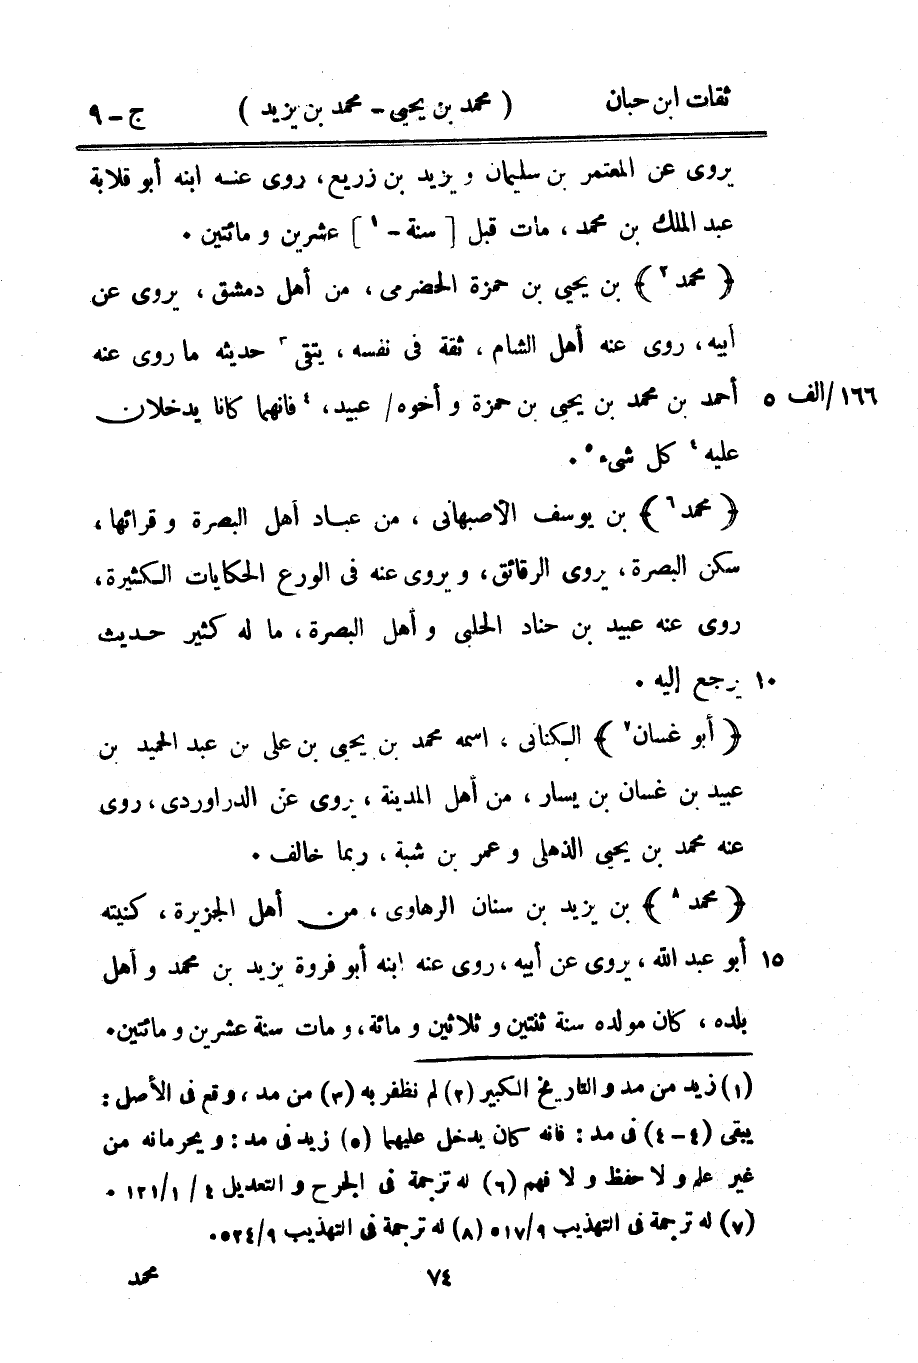 ثقات ابن حبان ( محمد بن يحيى - محمد بن يزيد ) ج - ٩
يروى عن المعتمر بن سليمان و يزيد بن زريع، روى عنه ابنه أبو قلابة
عبد الملك بن محمد، مات قبل [ سنة - ١ ] عشرين و مائتين ٠
﴿ محمد ٢ ﴾ بن يحيى بن حمزة الحضرمى، من أهل دمشق، يروى عن
أبيه، روى عنه أهل الشام، ثقة فى نفسه، يتقى ٣ حديثه ما روى عنه
١٦٦/الف ٥ أحمد بن محمد بن يحيى بن حمزة و أخوه/ عبيد، ٤ فانهما كانا يدخلان
عليه ٤ كل شىء ٥ ٠
﴿ محمد ٦ ﴾ بن يوسف الأصبهانى، من عباد أهل البصرة و قرائها،
سكن البصرة، يروى الرقائق، و يروى عنه فى الورع الحكايات الكثيرة،
روى عنه عبيد بن حناد الحلبى و أهل البصرة، ما له كثير حديث
١٠ يرجع إليه ٠
﴿ أبو غسان ٧ ﴾ الكنانى، اسمه محمد بن يحيى بن على بن عبد الحميد بن
عبيد بن غسان بن يسار، من أهل المدينة، يروى عن الدراوردى، روى
عنه محمد بن يحيى الذهلى و عمر بن شبة، ربما خالف ٠
﴿ محمد ٨ ﴾ بن يزيد بن سنان الرهاوى، من أهل الجزيرة، كنيته
١٥ أبو عبد الله، يروى عن أبيه، روى عنه ابنه أبو فروة يزيد بن محمد و أهل
بلده، كان مولده سنة ثنتين و ثلاثين و مائة، و مات سنة عشرين و مائتين ٠
(١) زيد من مد و التاريخ الكبير (٢) لم نظفر به (٣) من مد، و وقع فى الأصل :
يبقى (٤-٤) فى مد : فانه كان يدخل عليهما (٥) زيد فى مد : و يحرمانه من
غير علم و لا حفظ و لا فهم (٦) له ترجمة فى الجرح و التعديل ٤ / ١/ ١٢١ ٠
(٧) له ترجمة فى التهذيب ٩/ ٥١٧ (٨) له ترجمة فى التهذيب ٩/ ٥٢٤ ٠
٧٤ محمد